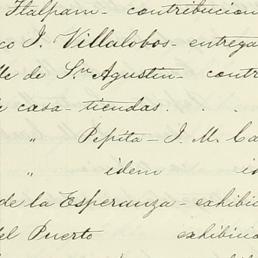 Tlalpam- contribucion
co J. Villalobos- entrega
lle de Sn Agustin- contr
e casa- tiendas. . .
" Pepita- J. M. Ca
" idem id
de la Esperanza- exhibic
del Puerto exhibicio